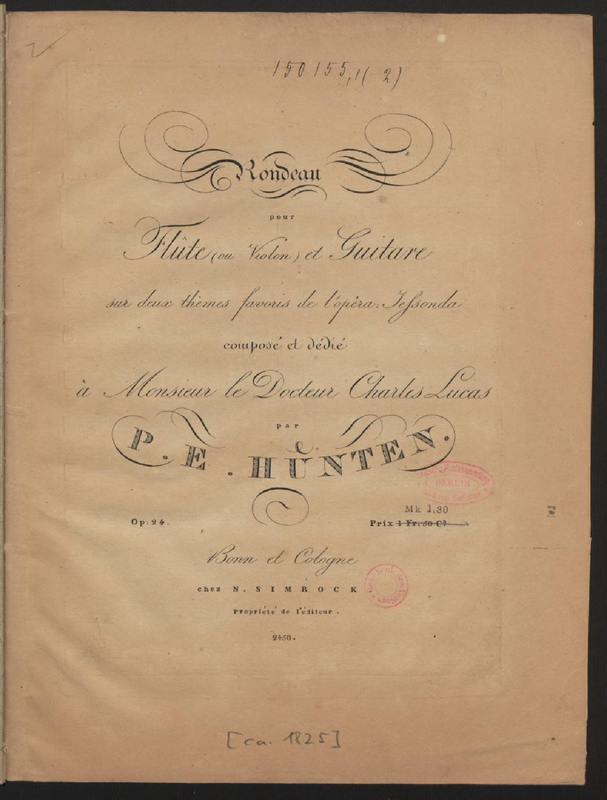 150155,1(-2)
Rondeau
pour
Flûte (ou Violon) et Guitare
sur deux thèmes favoris de l'opéra: Jessonda
composé et dédié
à Monsieur le Docteur Charles Lucas
par
P. E. HÜNTEN.
BERLIN
Mk 1,80
Op: 24.
Prix 1 Fr: 50 Cs
Bonn et Cologne
chez N. SIMROCK
Propriété de l'éditeur.
2450.
[ca. 1825]